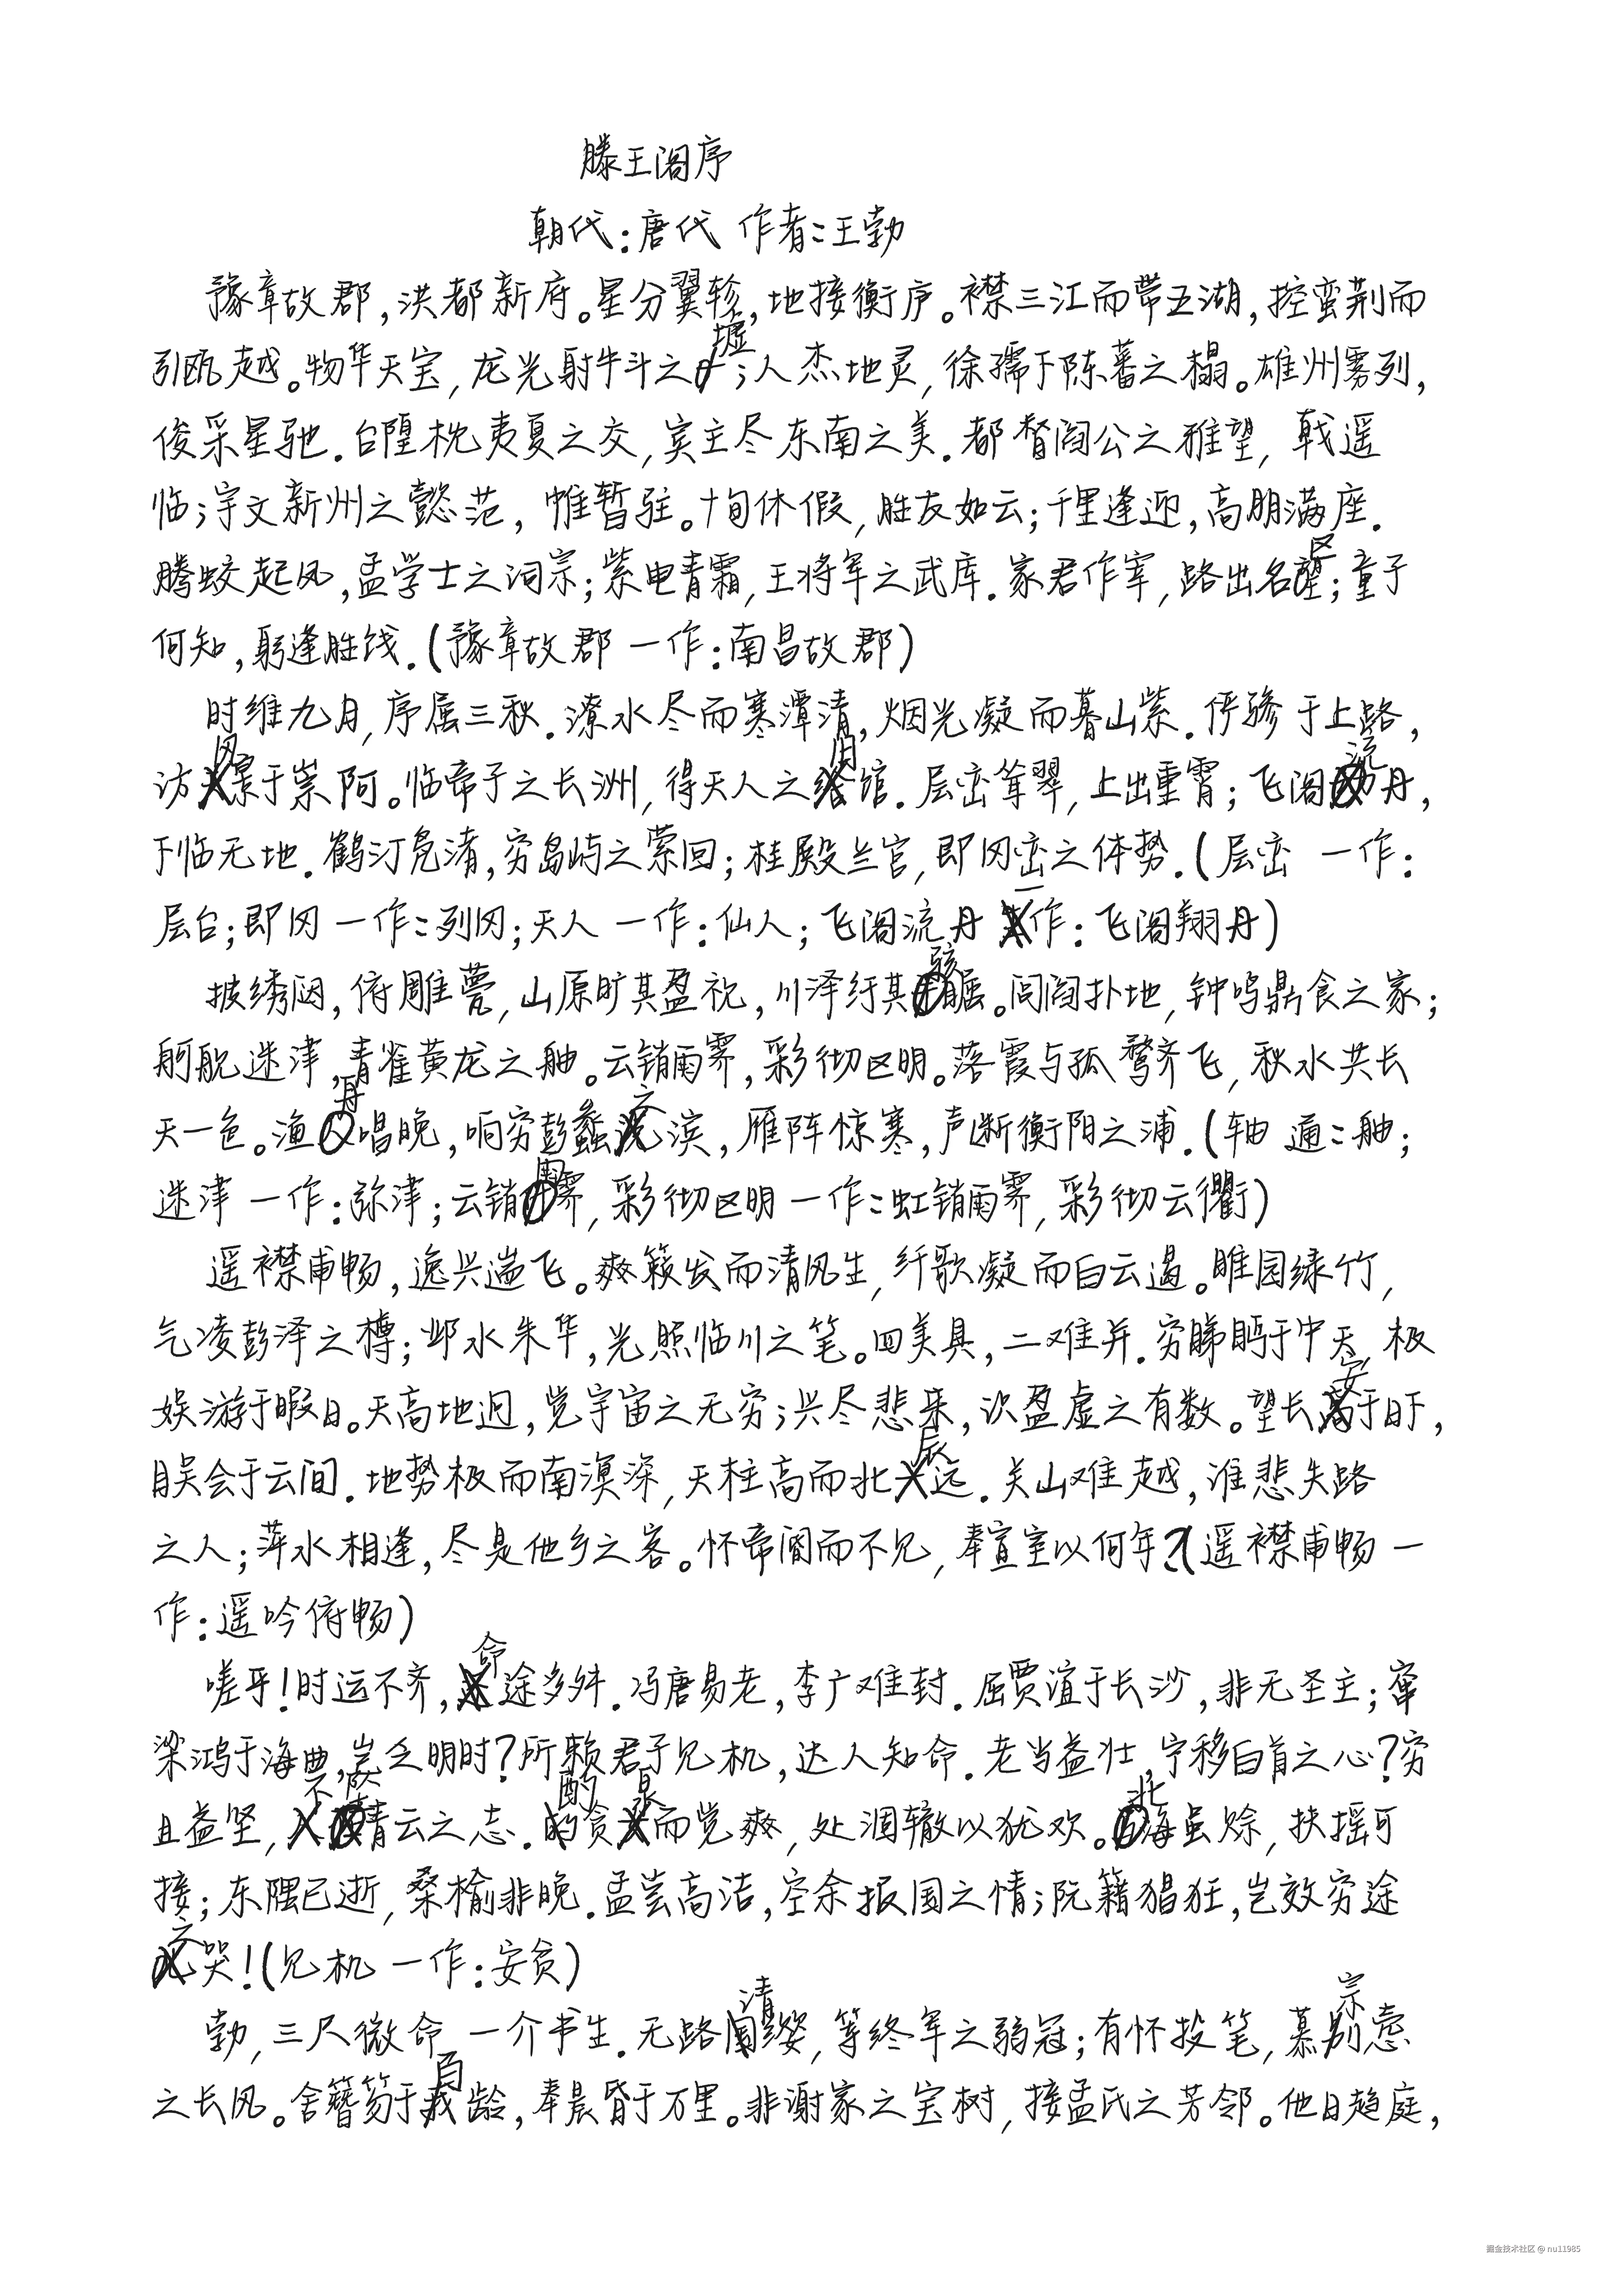 滕王阁序
朝代:唐代 作者:王勃
豫章故郡,洪都新府。星分翼轸,地接衡庐。襟三江而带五湖,控蛮荆而
引瓯越。物华天宝,龙光射牛斗之墟;人杰地灵,徐孺下陈蕃之榻。雄州雾列,
俊采星驰.台隍枕夷夏之交,宾主尽东南之美.都督阎公之雅望,戟遥
临;宇文新州之懿范,帷暂驻。十旬休假,胜友如云;千里逢迎,高朋满座.
腾蛟起风,孟学士之词宗;紫电青霜,王将军之武库.家君作宰,路出名区;童子
何知,躬逢胜饯.(豫章故郡 一作:南昌故郡)
时维九月,序属三秋.潦水尽而寒潭清,烟光凝而暮山紫.俨骖于上路,
访风景于崇阿。临帝子之长洲,得天人之旧馆.层峦耸翠,上出重霄;飞阁流丹,
下临无地.鹤汀凫渚,穷岛屿之萦回;桂殿兰宫,即冈峦之体势.(层峦 一作:
层台;即冈 一作:列冈;天人 一作:仙人;飞阁流丹 一作:飞阁翔丹)
披绣闼,俯雕甍,山原旷其盈视,川泽纡其骇瞩。闾阎扑地,钟鸣鼎食之家;
舸舰迷津,青雀黄龙之舳。云销雨霁,彩彻区明。落霞与孤鹜齐飞,秋水共长
天一色。渔舟唱晚,响穷彭蠡之滨,雁阵惊寒,声断衡阳之浦.(轴 通:舳;
迷津 一作:弥津;云销雨霁,彩彻区明 一作:虹销雨霁,彩彻云衢)
遥襟甫畅,逸兴遄飞。爽籁发而清风生,纤歌凝而白云遏。睢园绿竹,
气凌彭泽之樽;邺水朱华,光照临川之笔。四美具,二难并.穷睇眄于中天,极
娱游于暇日。天高地迥,觉宇宙之无穷;兴尽悲来,识盈虚之有数。望长安于日下,
目吴会于云间.地势极而南溟深,天柱高而北辰远.关山难越,谁悲失路
之人;萍水相逢,尽是他乡之客。怀帝阍而不见,奉宣室以何年?(遥襟甫畅 一
作:遥吟俯畅)
嗟乎!时运不齐,命途多舛.冯唐易老,李广难封.屈贾谊于长沙,非无圣主;窜
梁鸿于海曲,岂乏明时?所赖君子见机,达人知命.老当益壮,宁移白首之心?穷
且益坚,不坠青云之志.酌贪泉而觉爽,处涸辙以犹欢。北海虽赊,扶摇可
接;东隅已逝,桑榆非晚.孟尝高洁,空余报国之情;阮籍猖狂,岂效穷途
之哭!(见机 一作:安贫)
勃,三尺微命,一介书生.无路请缨,等终军之弱冠;有怀投笔,慕宗悫
之长风。舍簪笏于百龄,奉晨昏于万里。非谢家之宝树,接孟氏之芳邻。他日趋庭,
掘金技术社区 @ nu11985